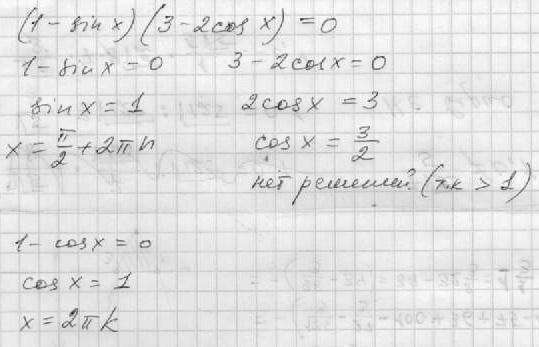 (1 - sin x)(3 - 2cos x) = 0
1 - sin x = 0   3 - 2cos x = 0
sin x = 1   2cos x = 3
x = π/2 + 2πn   cos x = 3/2
нет решений (т.к > 1)
1 - cos x = 0
cos x = 1
x = 2πk